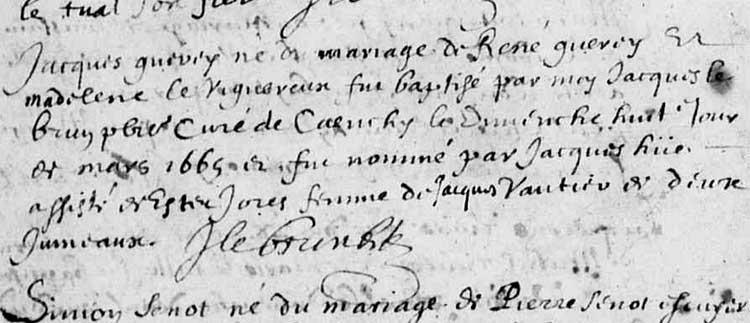 le
Jacques guerey né de mariage de René guerey Et
madelene le vigoureux fut baptisé par moy Jacques le
brun pbre Curé de le Dimenche huit e Jour
de mars 1665 et fut nommé par Jacques hüe
assisté de Ester Jores femme de Jacques Vautier de deux
Jumeaux. J le brun pbr
Simon Senot né du mariage de Pierre Senot escuyer